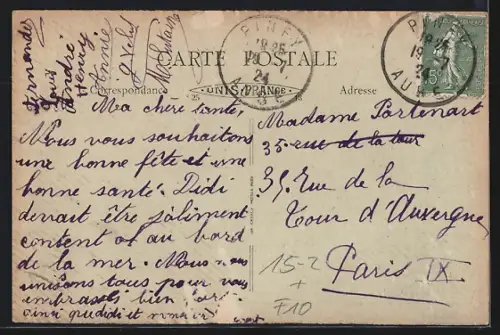 Fernande
Louis
André
Henry
Annie
CARTE POSTALE
Correspondance
UNIS FRANCE
Adresse
PINEY
24
AUBE
PINEY
AUBE
Ma chère tante,
Nous vous souhaitons
une bonne fête et une
bonne santé. Didi
devait être joliment
content au bord
de la mer. Nous nous
unissons tous pour vous
embrasser bien
ainsi que didi et
Madame Portenart
35 rue de la tour
35 Rue de la
Tour d'Auvergne
Paris IX
15-2
+
F10